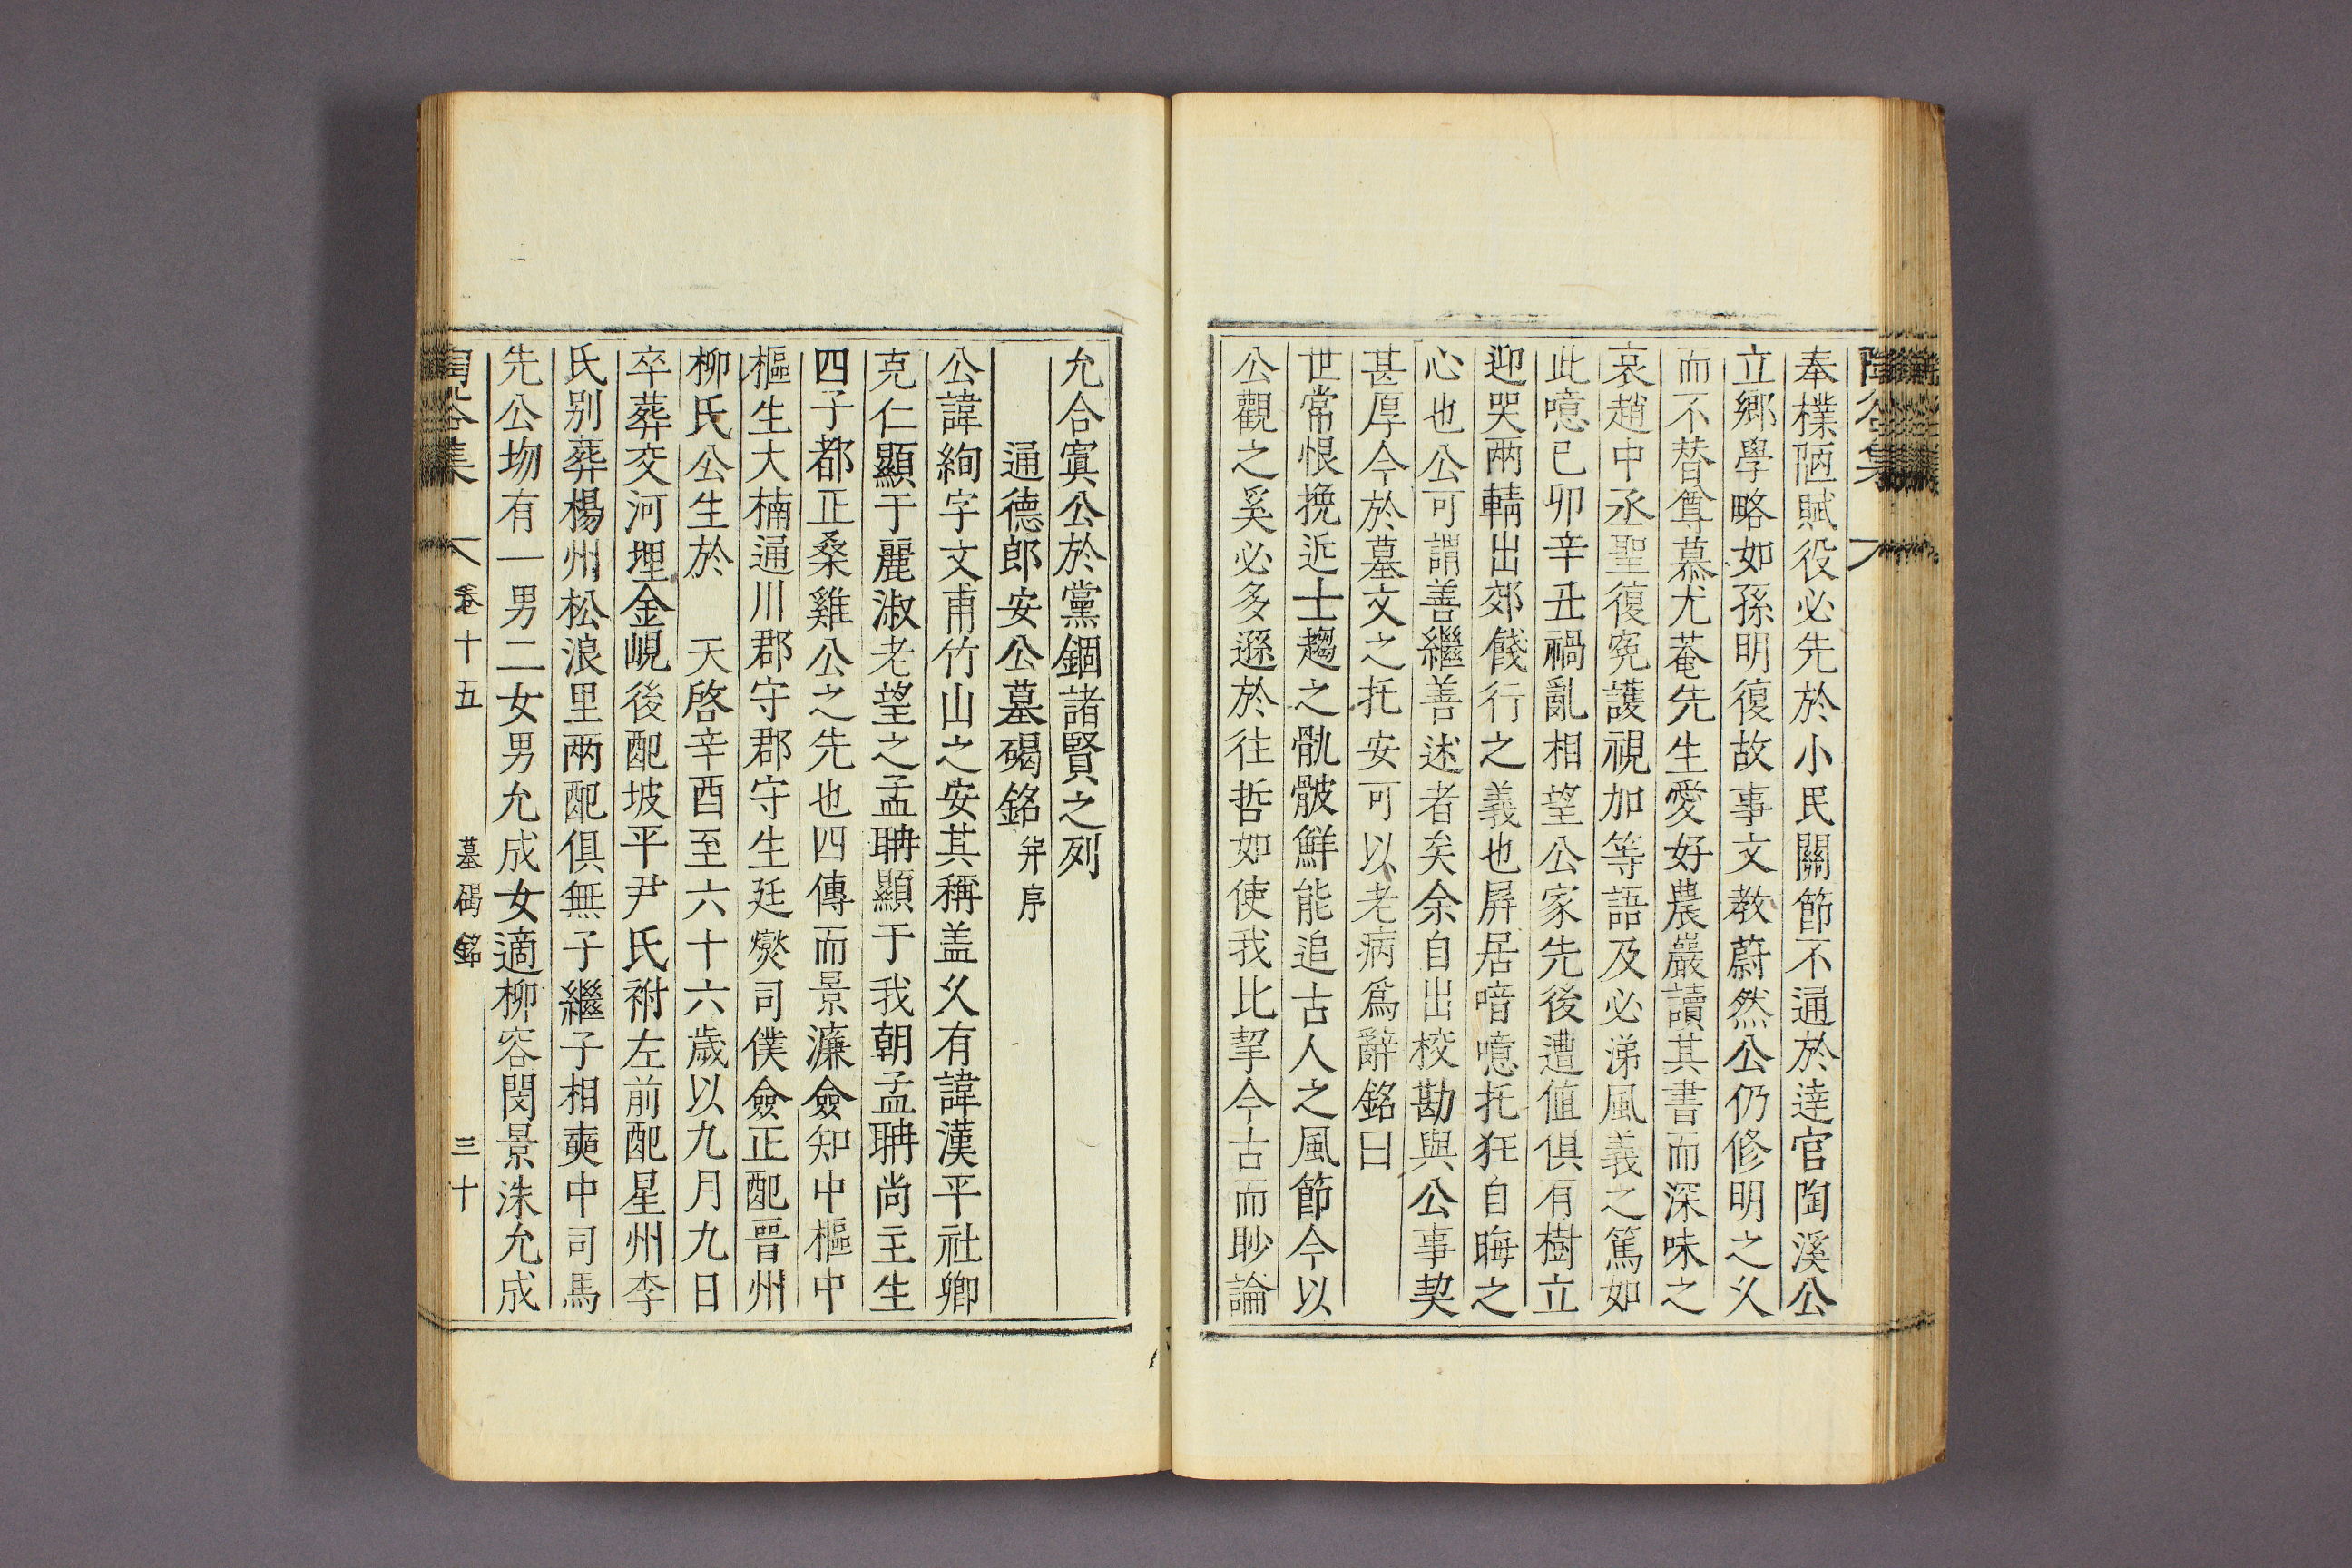 陶谷集
奉檏陋賦役必先於小民關節不通於達官陶溪公
立鄉學略如孫明復故事文教蔚然公仍修明之久
而不替尊慕尤菴先生愛好農巖讀其書而深味之
哀趙中丞聖復寃護視加等語及必涕風義之篤如
此噫己卯辛丑禍亂相望公家先後遭値俱有樹立
迎哭兩輤出郊餞行之義也屛居喑噫托狂自晦之
心也公可謂善繼善述者矣余自出校勘與公事契
甚厚今於墓文之托安可以老病爲辭銘曰
世常恨挽近士趨之骩骳鮮能追古人之風節今以
公觀之奚必多遜於往哲如使我比挈今古而眇論
允合寘公於黨錮諸賢之列
通德郎安公墓碣銘 幷序
公諱絢字文甫竹山之安其稱盖久有諱漢平社卿
克仁顯于麗淑老望之孟聃顯于我朝孟聃尚主生
四子都正桑雞公之先也四傳而景濂僉知中樞中
樞生大楠通川郡守郡守生廷爕司僕僉正配晋州
柳氏公生於 天啓辛酉至六十六歲以九月九日
卒葬交河埋金峴後配坡平尹氏祔左前配星州李
氏別葬楊州松浪里兩配俱無子繼子相奭中司馬
先公歾有一男二女男允成女適柳容閔景洙允成
陶谷集 卷十五 墓碣銘 三十